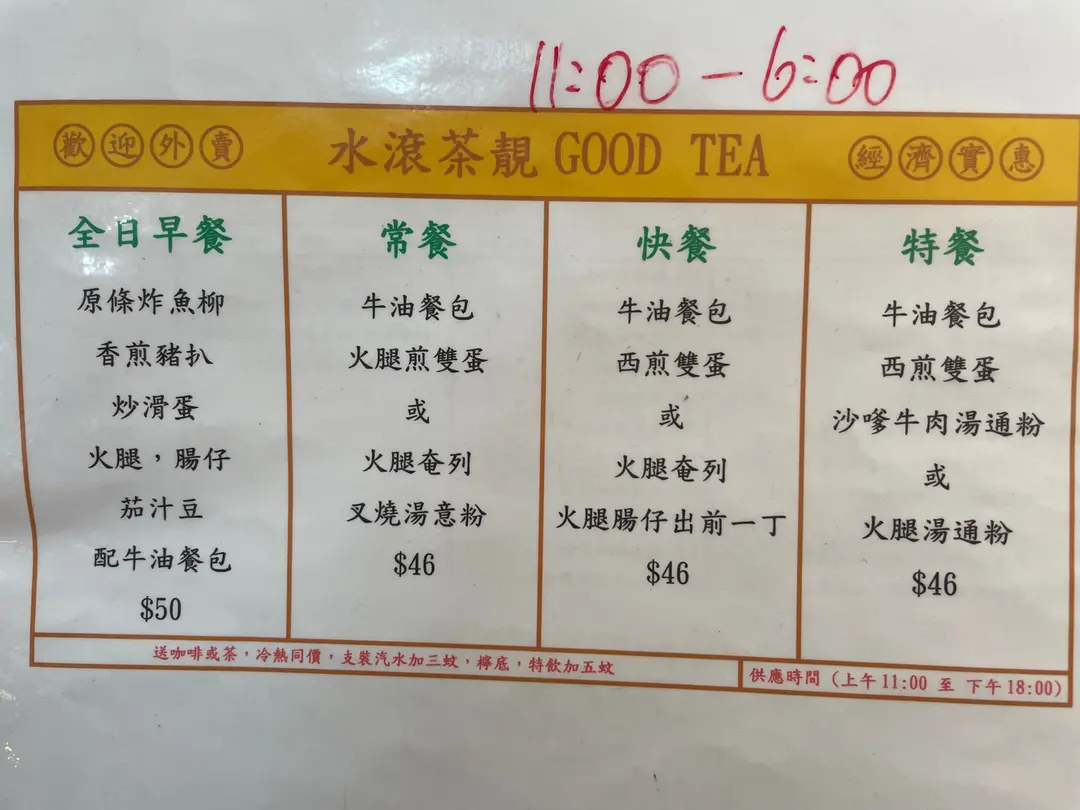 11:00 - 6:00
歡迎外賣 水滾茶靚 GOOD TEA 經濟實惠
全日早餐
原條炸魚柳
香煎豬扒
炒滑蛋
火腿，腸仔
茄汁豆
配牛油餐包
$50
常餐
牛油餐包
火腿煎雙蛋
或
火腿奄列
叉燒湯意粉
$46
快餐
牛油餐包
西煎雙蛋
或
火腿奄列
火腿腸仔出前一丁
$46
特餐
牛油餐包
西煎雙蛋
沙嗲牛肉湯通粉
或
火腿湯通粉
$46
送咖啡或茶，冷熱同價，支裝汽水加三蚊，檸底，特飲加五蚊
供應時間 (上午11:00 至 下午18:00)